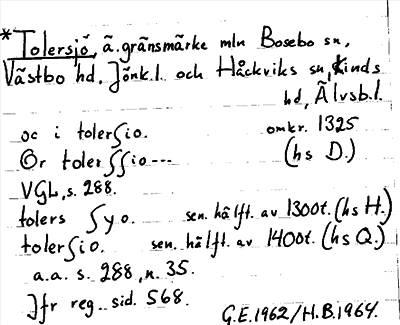 *Tolersjö, ä. gränsmärke mln Bosebo sn,
Västbo hd, Jönk.l. och Håckviks sn, Kinds
hd, Älvsb.l.
oc i tolerſio. omkr. 1325
Or tolerſſio--- (hs D.)
VGL, s. 288.
tolers ſyo. sen. hälft. av 1300t. (hs H.)
tolerſio. sen. hälft. av 1400t. (hs Q.)
a.a. s. 288, n. 35.
Jfr reg. sid. 568.
G.E.1962/H.B.1964.